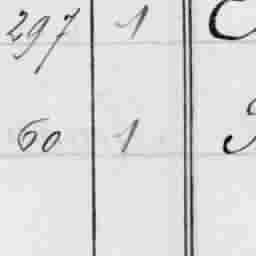 297 1
60 1